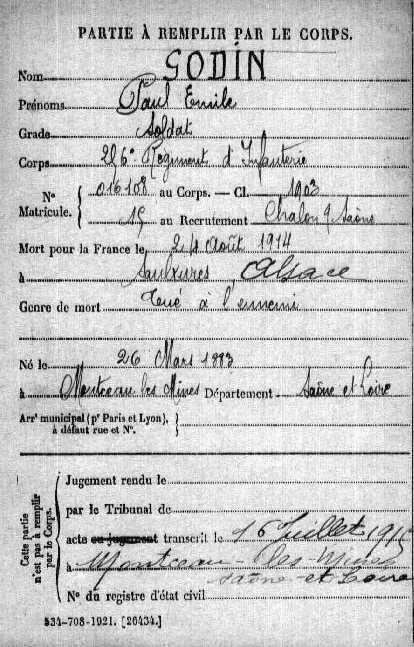 PARTIE À REMPLIR PAR LE CORPS.
Nom GODIN
Prénoms Paul Emile
Grade Soldat
Corps 296e Régiment d'Infanterie
N° Matricule. { 016108 au Corps. — Cl. 1903
15 au Recrutement Chalon s. Saône
Mort pour la France le 24 Août 1914
à Saulxures Alsace
Genre de mort Tué à l'ennemi
Né le 26 Mars 1883
à Montceau les Mines Département Saône et Loire
Arrt municipal (pr Paris et Lyon),
à défaut rue et N°.
Cette partie n'est pas à remplir par le Corps.
Jugement rendu le
par le Tribunal de
acte ou jugement transcrit le 16 Juillet
à Montceau-les-Mines
Saône-et-Loire
N° du registre d'état civil
534-708-1921. [26434.]